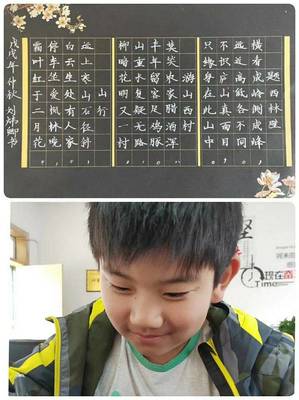 题西林壁
横看成岭侧成峰
远近高低各不同
不识庐山真面目
只缘身在此山中
游山西村
莫笑农家腊酒浑
丰年留客足鸡豚
山重水复疑无路
柳暗花明又一村
山行
远上寒山石径斜
白云生处有人家
停车坐爱枫林晚
霜叶红于二月花
戊戌年仲秋 刘炜卿书
现在奋
Time